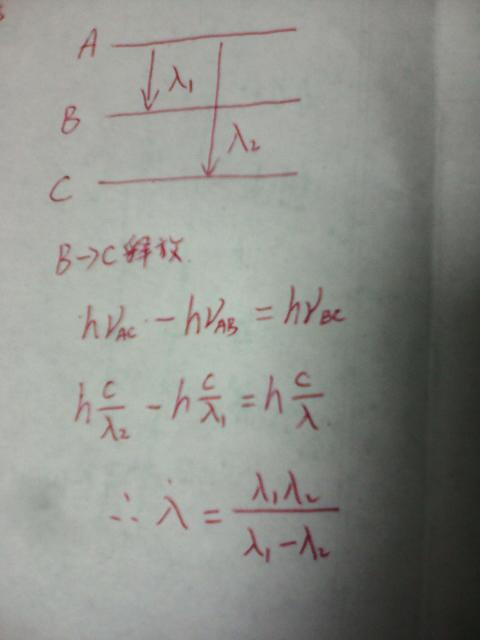 A
λ₁
B
λ₂
C
B→C释放.
hν_AC - hν_AB = hν_BC
h c/λ₂ - h c/λ₁ = h c/λ
∴ λ = λ₁λ₂/(λ₁-λ₂)